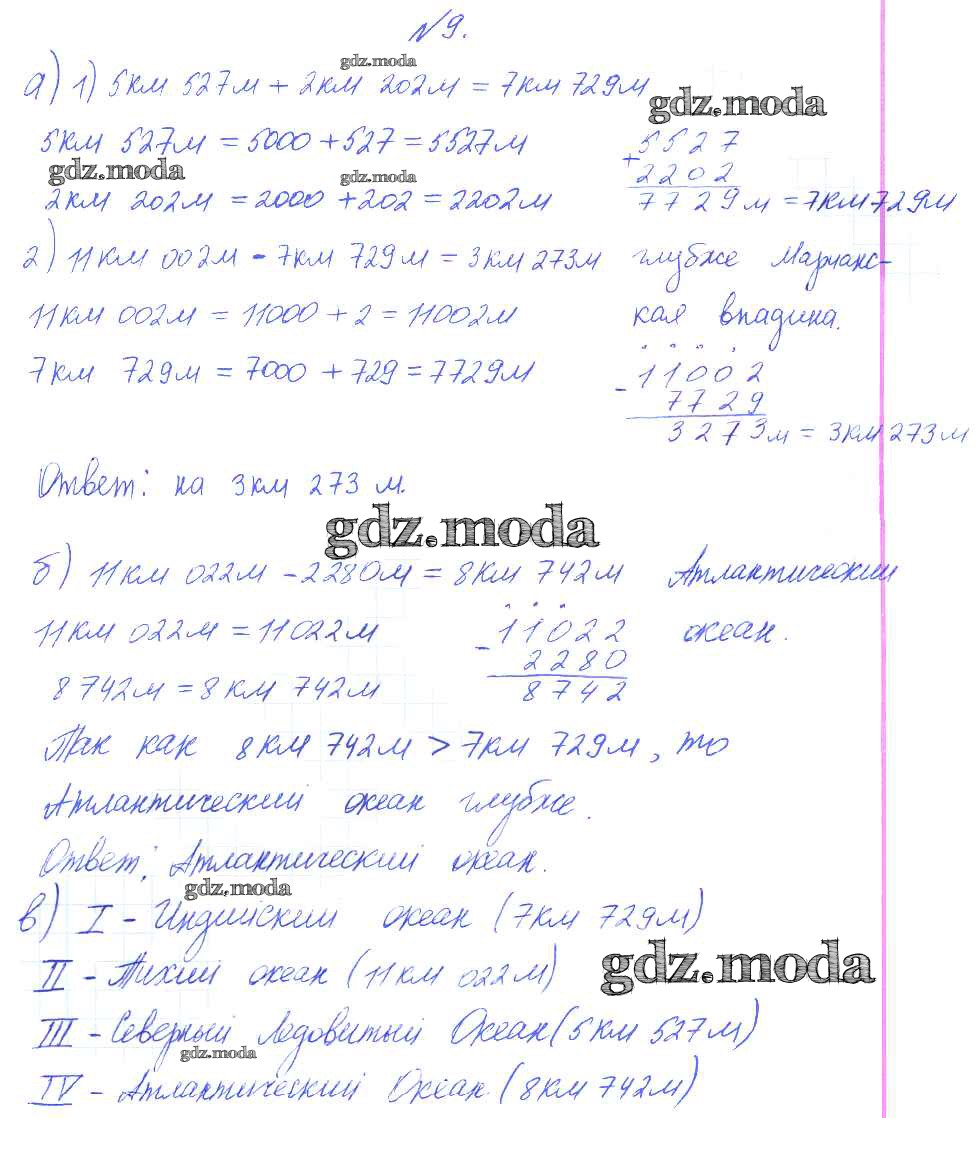 №9.
gdz.moda
а) 1) 5км 527м + 2км 202м = 7км 729м
gdz.moda
5км 527м = 5000 + 527 = 5527м
5527
gdz.moda
gdz.moda
+ 2202
2км 202м = 2000 + 202 = 2202м
7729м = 7км 729м
2) 11км 002м - 7км 729м = 3км 273м глубже Марианс-
11км 002м = 11000 + 2 = 11002м кая впадина.
7км 729м = 7000 + 729 = 7729м
11002
- 7729
3273м = 3км 273м
Ответ: на 3км 273 м.
gdz.moda
б) 11км 022м - 2280м = 8км 742м Атлантический
11км 022м = 11022м
11022
океан.
- 2280
8742м = 8км 742м
8742
Так как 8км 742м > 7км 729м, то
Атлантический океан глубже.
Ответ: Атлантический океан.
gdz.moda
в) I - Индийский океан (7км 729м)
gdz.moda
II - Тихий океан (11км 022м)
III - Северный Ледовитый Океан (5км 527м)
gdz.moda
IV - Атлантический Океан (8км 742м)